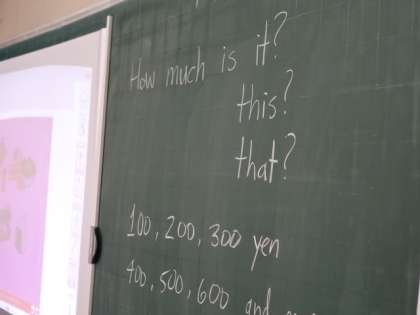 How much is it?
this?
that?
100, 200, 300 yen
400, 500, 600 and